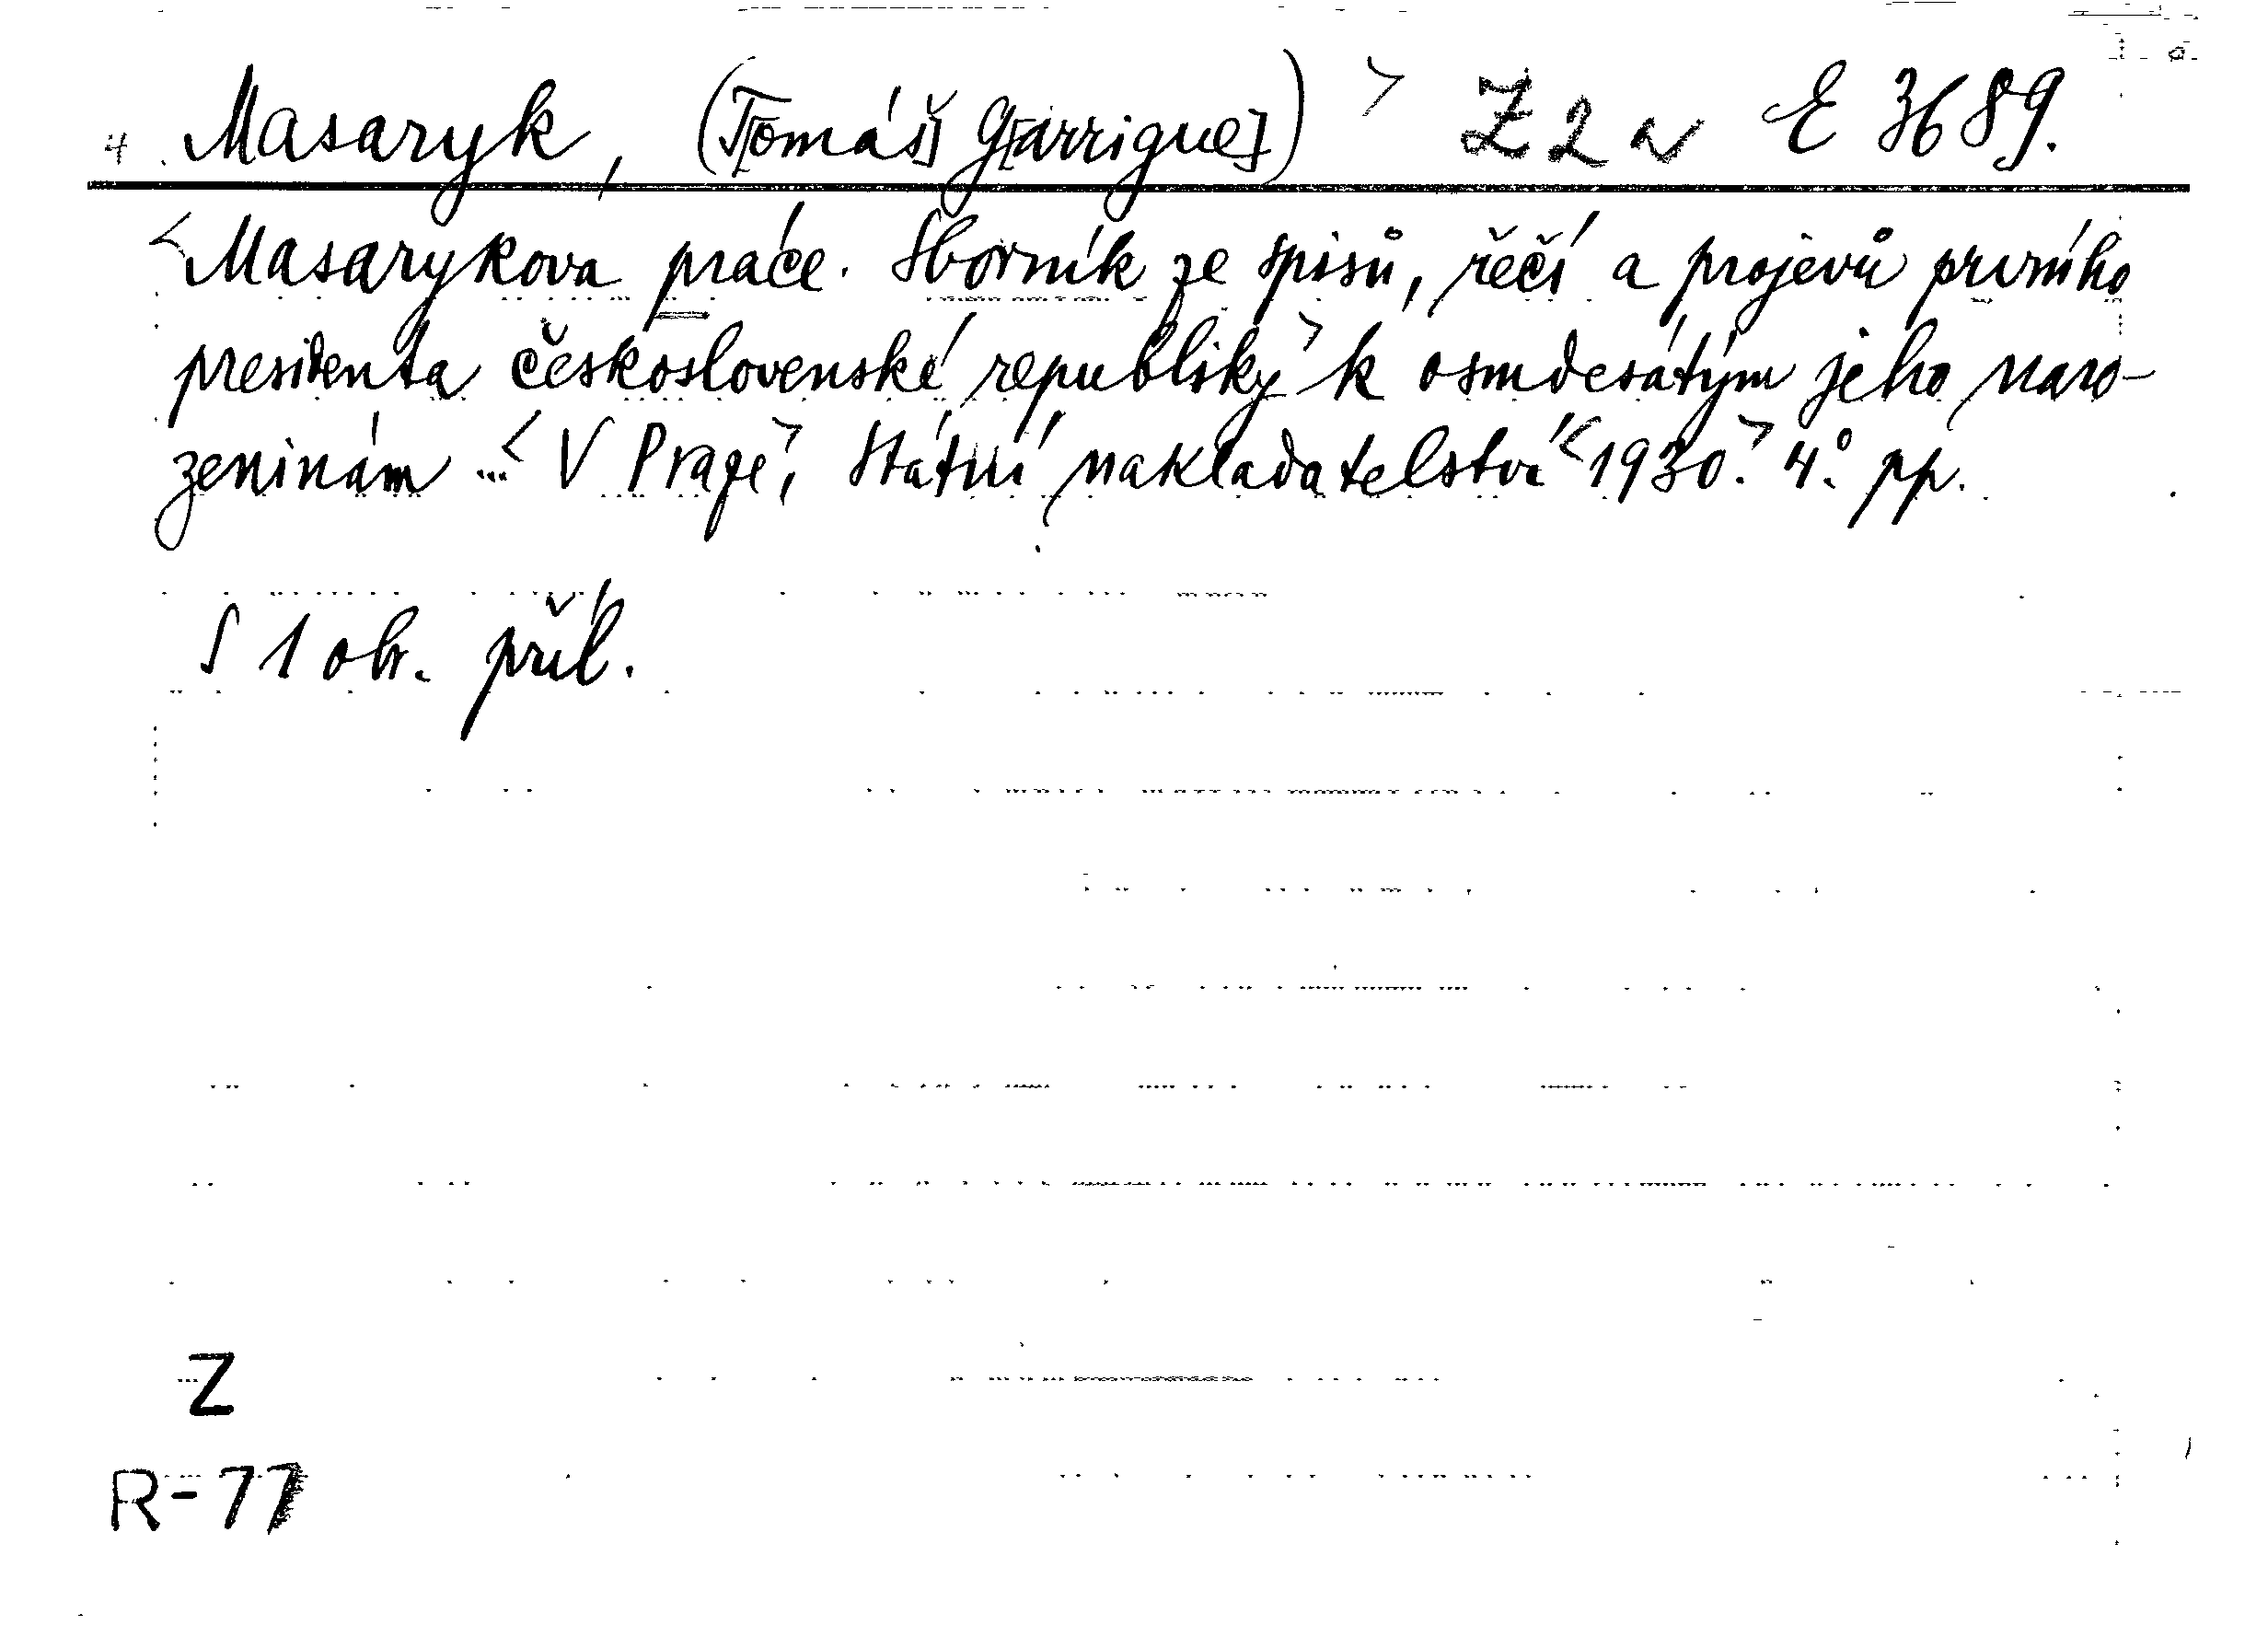 4. Masaryk, (T[omáš] G[arrigue]) > Z 2 a E 3689.
<Masarykova práce. Sborník ze spisů, řečí a projevů prvního
presidenta československé republiky> k osmdesátým jeho naro-
zeninám ...< V Praze>, Státní nakladatelství <1930.> 4° pp.
S 1 obr. příl.
Z
R-77